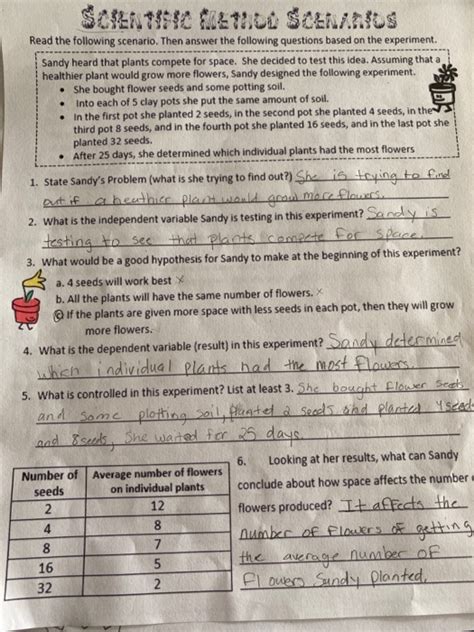 SCIENTIFIC METHOD SCENARIOS
Read the following scenario. Then answer the following questions based on the experiment.
Sandy heard that plants compete for space. She decided to test this idea. Assuming that a
healthier plant would grow more flowers, Sandy designed the following experiment.
• She bought flower seeds and some potting soil.
• Into each of 5 clay pots she put the same amount of soil.
• In the first pot she planted 2 seeds, in the second pot she planted 4 seeds, in the
third pot 8 seeds, and in the fourth pot she planted 16 seeds, and in the last pot she
planted 32 seeds.
• After 25 days, she determined which individual plants had the most flowers
1. State Sandy's Problem (what is she trying to find out?) She is trying to find
out if a heathier plant would grow more flowers.
2. What is the independent variable Sandy is testing in this experiment? Sandy is
testing to see that plants compete for space.
3. What would be a good hypothesis for Sandy to make at the beginning of this experiment?
a. 4 seeds will work best x
b. All the plants will have the same number of flowers. x
c If the plants are given more space with less seeds in each pot, then they will grow
more flowers.
4. What is the dependent variable (result) in this experiment? Sandy determined
which individual plants had the most flowers.
5. What is controlled in this experiment? List at least 3. She bought flower seeds
and some plotting soil, planted 2 seeds and planted 4 seeds
and 8 seeds, She waited for 25 days.
Number of seeds Average number of flowers on individual plants
2 12
4 8
8 7
16 5
32 2
6. Looking at her results, what can Sandy
conclude about how space affects the number
flowers produced? It affects the
number of flowers of getting
the average number of
flowers Sandy planted.